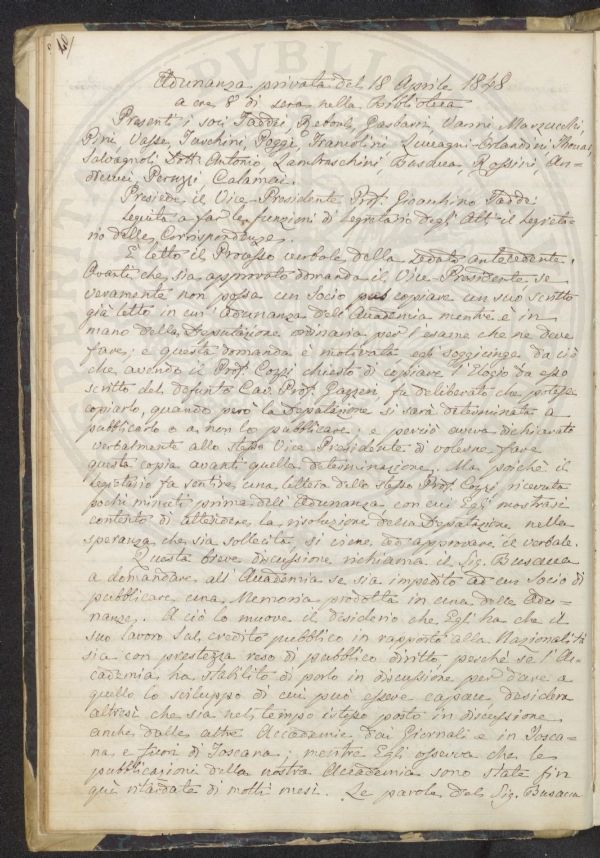 Adunanza privata del 18 Aprile 1848
a ore 8 di sera nella Biblioteca
Presenti i soci Taddei, Reboul, Gasbarri, Vanni, Marzucchi,
Pini, Vasse, Tarchini, Poggi, Franiolini Luccagni-Orlandini Thouar,
Salvagnoli Dott. Antonio, Lambruschini, Busacca, Rossini, An-
dreucci, Peruzzi Calamai.
Presiede il Vice Presidente Prof. Gioacchino Taddei
Seguita a far le funzioni di Segretario degli Atti il Segreta-
rio delle Corrispondenze.
È letto il Processo verbale della Seduta antecedente.
Avanti che sia approvato domanda il Vice-Presidente, se
veramente non possa un Socio copiare un suo scritto
già letto in un'Adunanza dell'Accademia mentre è in
mano della Deputazione ordinaria per l'esame che ne deve
fare; e questa domanda è motivata egli soggiunge da ciò
che avendo il Prof. Cozzi chiesto di copiare l'Elogio da esso
scritto del defunto Cav. Prof. Gazzeri fu deliberato che potesse
copiarlo, quando però la Deputazione si sarà determinata a
pubblicarlo o a non lo pubblicare; e perciò aveva dichiarato
verbalmente allo stesso Vice Presidente di volerne fare
questa copia avanti quella determinazione. Ma poichè il
Segretario fa sentire una lettera dello stesso Prof. Cozzi, ricevuta
pochi minuti prima dell'Adunanza, con cui Egli mostrasi
contento di attendere la risoluzione della Deputazione nella
speranza che sia sollecita, si viene ad approvare il verbale.
Questa breve discussione richiama il Sig. Busacca
a domandare all'Accademia se sia impedito ad un Socio di
pubblicare una Memoria prodotta in una delle Adu-
nanze. A ciò lo muove il desiderio che Egli ha che il
suo lavoro sul credito pubblico in rapporto alla Nazionalità
sia con prestezza reso di pubblico diritto perchè se l'Ac-
cademia ha stabilito di porlo in discussione per dare a
quello lo sviluppo di cui può essere capace, desidera
altresì che sia nel tempo istesso posto in discussione
anche dalle altre Accademie dai Giornali e in Tosca-
na, e fuori di Toscana; mentre Egli osserva che le
pubblicazioni della nostra Accademia sono state fin
quì ritardate di molti mesi. Le parole del Sig. Busacca